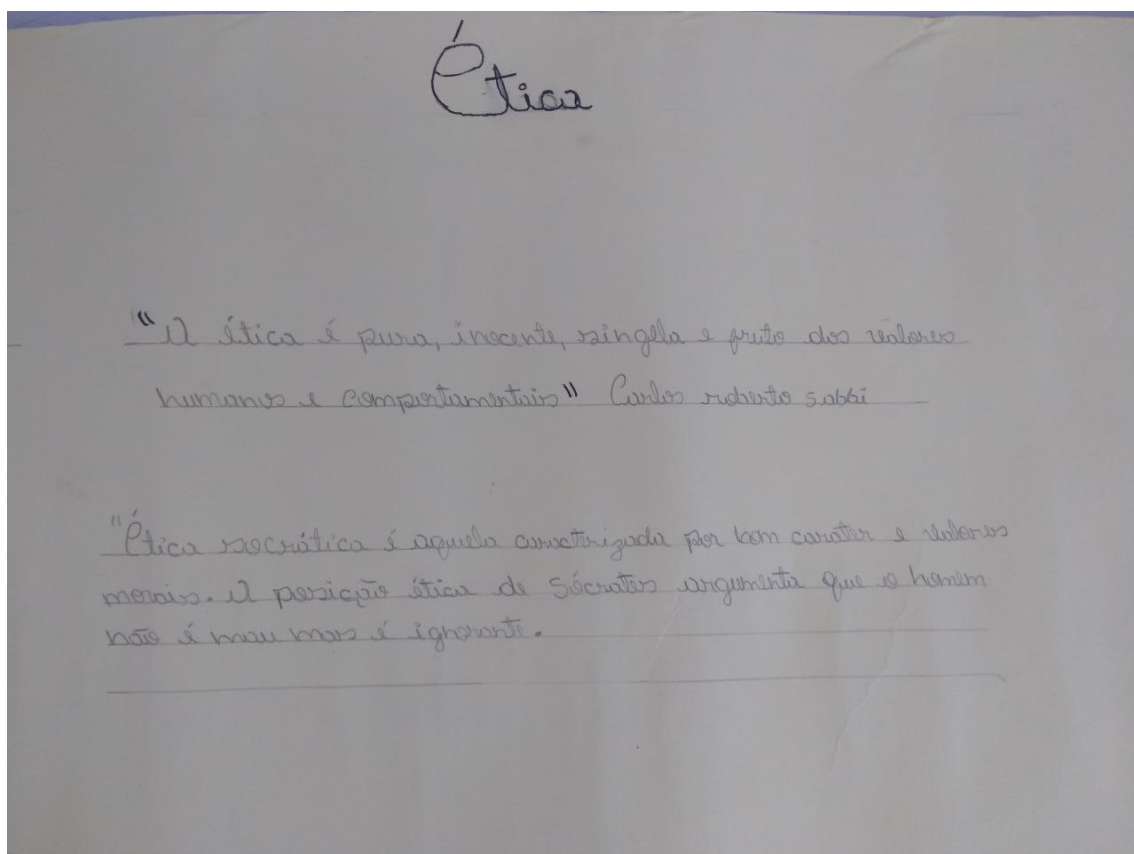 Ética
"A ética é pura, inocente, singela e fruto dos valores
humanos e comportamentais" Carlos roberto sabbi
"Ética socrática é aquela caractrizada por bom carater e valores
morais. A posição ética de Sócrates argumenta que o homem
não é mau mas é ignorante.